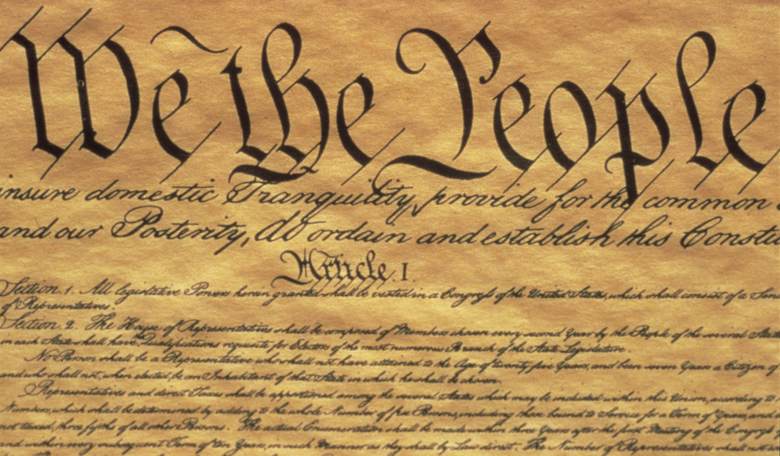 We the People
insure domestic Tranquility, provide for the common
and our Posterity, do ordain and establish this Constitu
Article. I.
Section. 1. All legislative Powers herein granted shall be vested in a Congress of the United States, which shall consist of a Sen
of Representatives.
Section. 2. The House of Representatives shall be composed of Members chosen every second Year by the People of the several States
in each State shall have Qualifications requisite for Electors of the most numerous Branch of the State Legislature.
No Person shall be a Representative who shall not have attained to the Age of twenty five Years, and been seven Years a Citizen of
and who shall not, when elected, be an Inhabitant of that State in which he shall be chosen.
Representatives and direct Taxes shall be apportioned among the several States which may be included within this Union, according to
Numbers, which shall be determined by adding to the whole Number of free Persons, including those bound to Service for a Term of Years, and
not taxed, three fifths of all other Persons. The actual Enumeration shall be made within three Years after the first Meeting of the Congress
and within every subsequent Term of ten Years, in such Manner as they shall by Law direct. The Number of Representatives shall not